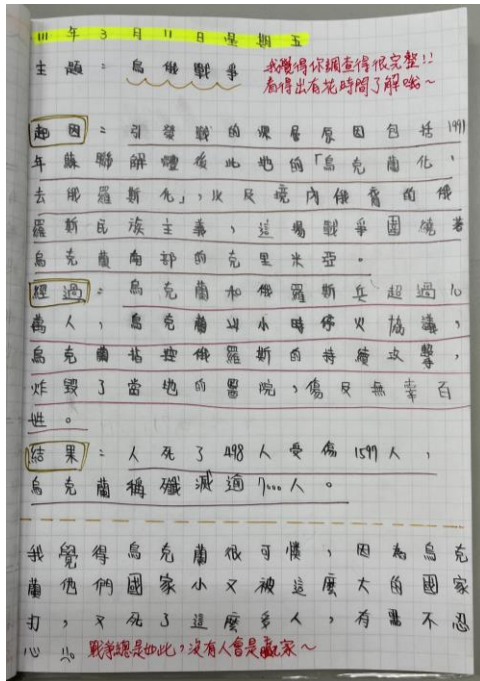 111年3月11日星期五
主題：烏俄戰爭
我覺得你調查得很完整!!
看得出有花時間了解喲~
起因：引發戰的深層原因包括1991
年蘇聯解體後此地的「烏克蘭化，
去俄羅斯化」，以及境內俄裔的俄
羅斯民族主義，這場戰爭圍繞著
烏克蘭南部的克里米亞。
經過：烏克蘭和俄羅斯兵超過
萬人，烏克蘭 小時停火協議，
烏克蘭指控俄羅斯的持續攻擊，
炸毀了當地的醫院，傷及無辜百
姓。
結果：人死了498人受傷1597人，
烏克蘭稱殲滅 7000人。
我覺得烏克蘭很可憐，因為烏克
蘭他們國家小又被這麼大的國家
打，又死了這麼多人，有點不忍
心
戰爭總是如此，沒有人會是贏家~